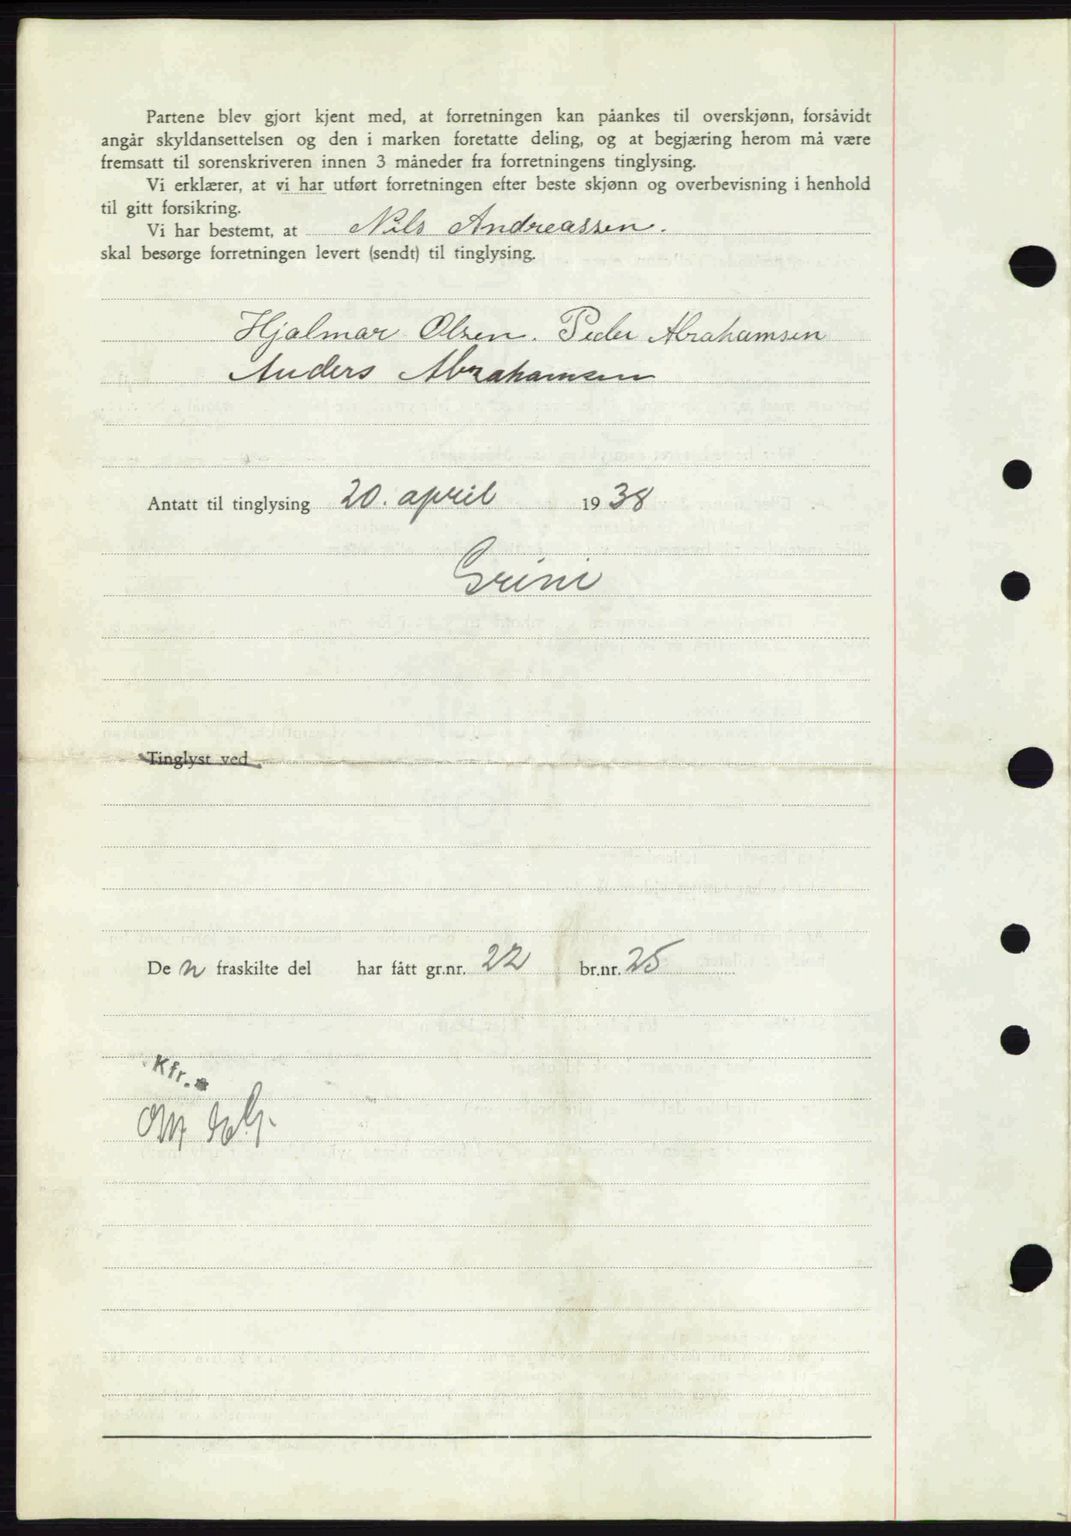 Partene blev gjort kjent med, at forretningen kan påankes til overskjønn, forsåvidt
angår skyldansettelsen og den i marken foretatte deling, og at begjæring herom må være
fremsatt til sorenskriveren innen 3 måneder fra forretningens tinglysing.
Vi erklærer, at vi har utført forretningen efter beste skjønn og overbevisning i henhold
til gitt forsikring.
Vi har bestemt, at Nils Andreassen.
skal besørge forretningen levert (sendt) til tinglysing.
Hjalmar Olsen. Peder Abrahamsen
Anders Abrahamsen
Antatt til tinglysing 20. april 1938
Grini
Tinglyst ved
De n fraskilte del har fått gr.nr. 22 br.nr. 25
Kfr.